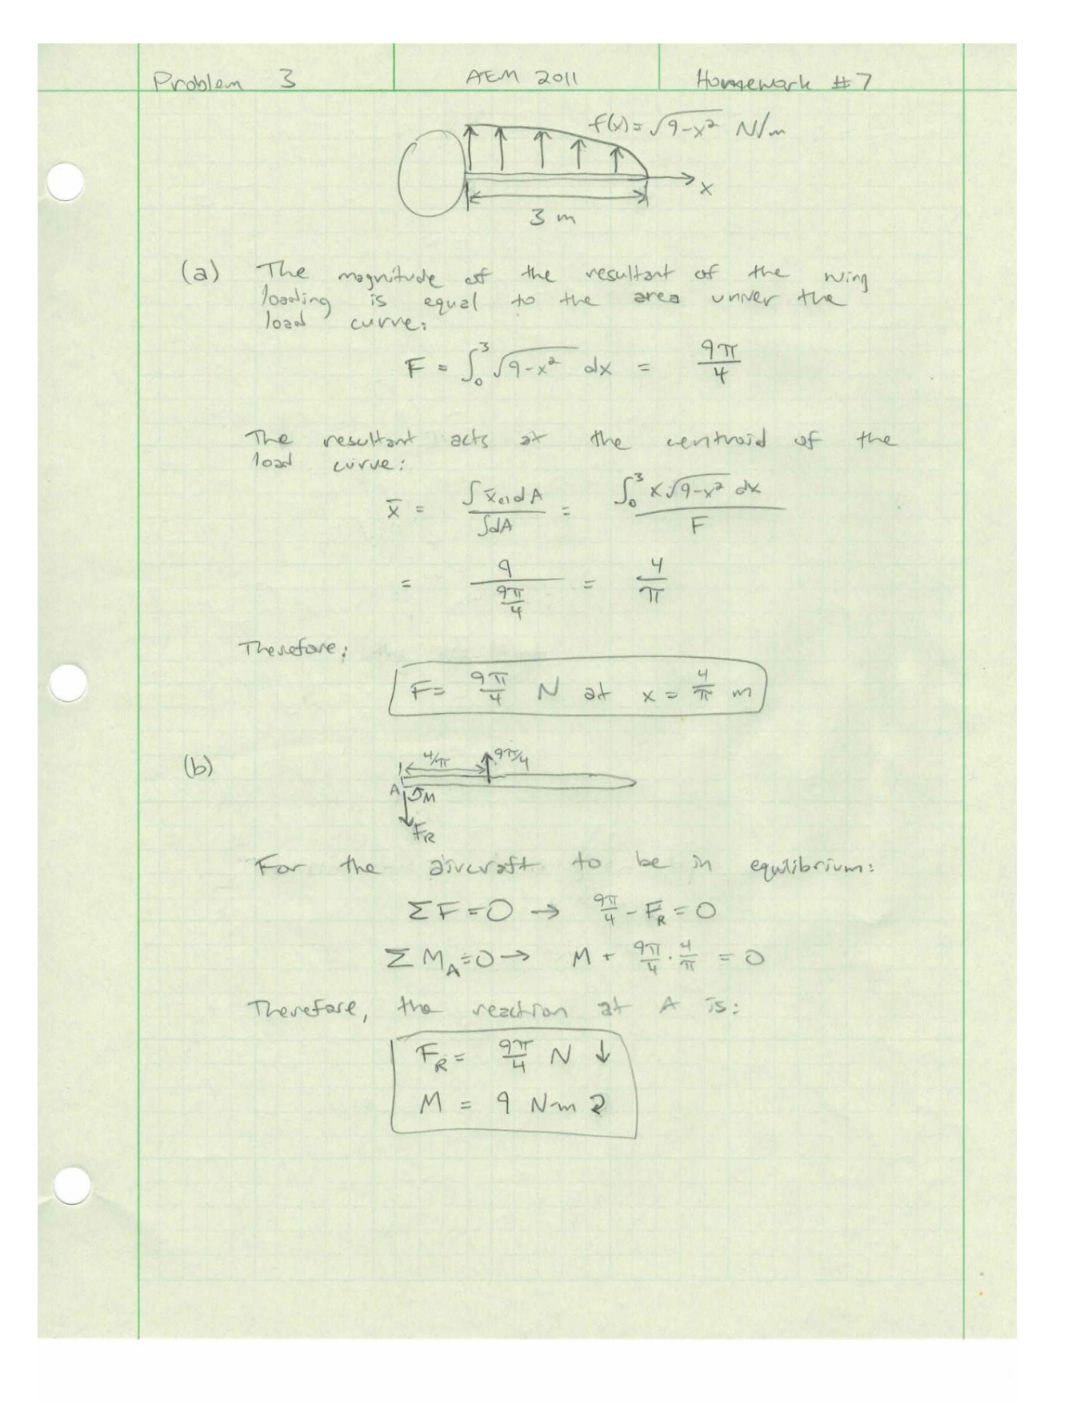 Problem 3 AEM 2011 Homework #7
f(x) = √9-x² N/m
x
3 m
(a) The magnitude of the resultant of the wing
loading is equal to the area under the
load curve:
F = ∫₀³ √9-x² dx = 9π/4
The resultant acts at the centroid of the
load curve:
x̄ = ∫x̄ₑₗdA / ∫dA = ∫₀³ x√9-x² dx / F
= 9 / (9π/4) = 4/π
Therefore:
F = 9π/4 N at x = 4/π m
(b) 4/π 9π/4
A M
F_R
For the aircraft to be in equilibrium:
ΣF=0 → 9π/4 - F_R = 0
ΣM_A=0 → M + 9π/4 · 4/π = 0
Therefore, the reaction at A is:
F_R = 9π/4 N ↓
M = 9 N·m ↻